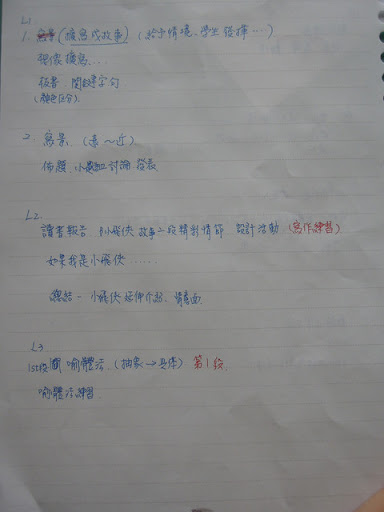 L1
1. (擴寫成故事) (給予情境、學生發揮....)
想像擴寫...
板書 關鍵字句
(顏色區分)
2. 寫景 (遠~近)
佈題 小組討論 發表
L2
讀書報告 小飛俠 故事 一段精彩情節 設計活動 (寫作練習)
如果我是小飛俠......
總結 - 小飛俠 延伸介紹、情意面
L3
1st段 喻體法. (抽象→具体) 第1段.
喻體法練習.